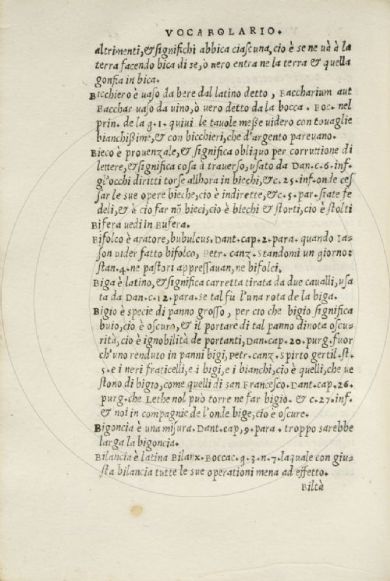 VOCABOLARIO.
altrimenti,& significhi abbica ciascuna, cio è se ne uà à la
terra facendo bica di se, o uero entra ne la terra & quella
gonfia in bica.
Bicchiero è uaso da bere dal latino detto, Baccharium aut
Bacchar uaso da uino, o uero detto da la bocca. Boc. nel
prin. de la g.1. quiui le tauole messe uidero con touaglie
bianchissime, & con bicchieri, che d'argento pareuano.
Bieco è prouenzale, & significa obliquo per corruttione di
lettere, & significa cosa à trauerso, usato da Dan.c.6.inf.
gl'occhi diritti torse allhora in biechi,& c.25.inf.onde ces
sar le sue opere bieche, cio è indirette, & c.5.par.siate fe
deli, & è cio far nō bieci, cio è biechi & storti, cio è stolti
Bifera uedi in Bufera.
Bifolco è aratore, bubulcus. Dant.cap.2.para.quando Ia-
son uider fatto bifolco, Petr.canz.Standomi un giorno:
stan.4.ne pastori appressauan, ne bifolci.
Biga è latino, & significa carretta tirata da due caualli, usa
ta da Dan.c.12.para.se tal fu l'una rota de la biga.
Bigio è specie di panno grosso, per cio che bigio significa
buio, cio è oscuro, & il portare di tal panno dinota oscu
rità, cio è ignobilità de portanti, Dan.cap.20.purg.fuor
ch'uno renduto in panni bigi, Petr.canz.Spirto gentil.st.
5.e i neri fraticelli, e i bigi, e i bianchi, cio è quelli, che ue
stono di bigio, come quelli di san Francesco. Dant.cap.26.
purg.che Lethe nol può torre ne far bigio. & c.27.inf.
& noi in compagnie de l'onde bige, cio è oscure.
Bigoncia è una misura. Dant.cap,9.para.troppo sarebbe
larga la bigoncia.
Bilancia è latina Bilanx. Boccac.g.3.n.7.laquale con giu
sta bilancia tutte le sue operationi mena ad effetto.
Biltà